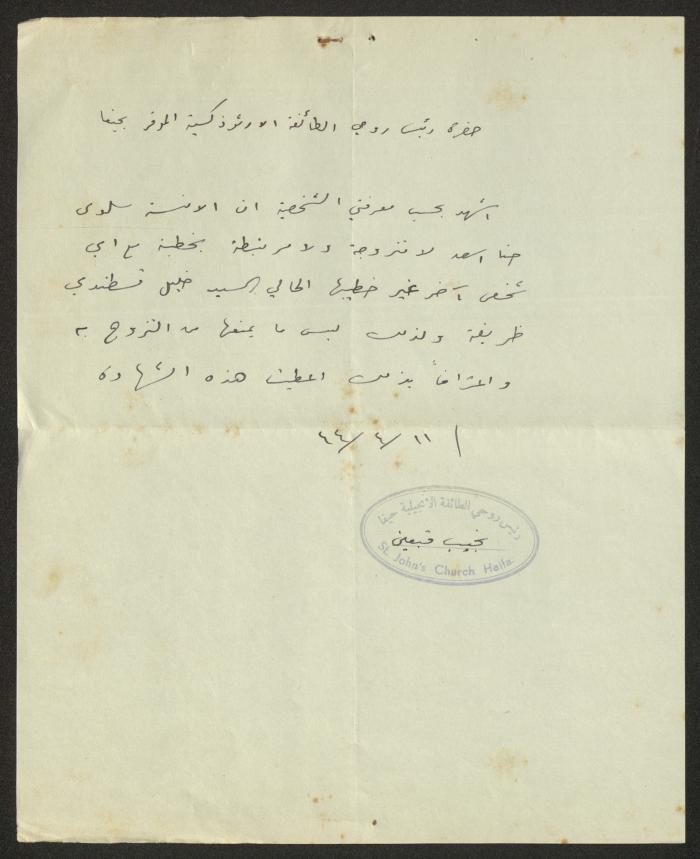 حضرة رئيس روحي الطائفة الارثوذكسية الموقر بحيفا
اشهد بحسب معرفتي الشخصية ان الانسة سلوى
حنا اسعد لا متزوجة ولا مرتبطة بخطبة مع اي
شخص آخر غير خطيبها الحالي السيد خليل قسطندي
ظريفة ولذلك ليس ما يمنعها من التزوج به
واعترافاً بذلك اعطيت هذه الشهادة
١١/٤/٤٤
رئيس روحي الطائفة الانجيلية حيفا
نجيب قبعين
St. John's Church Haifa.